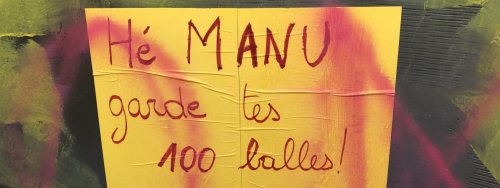 Hé MANU
garde tes
100 balles!